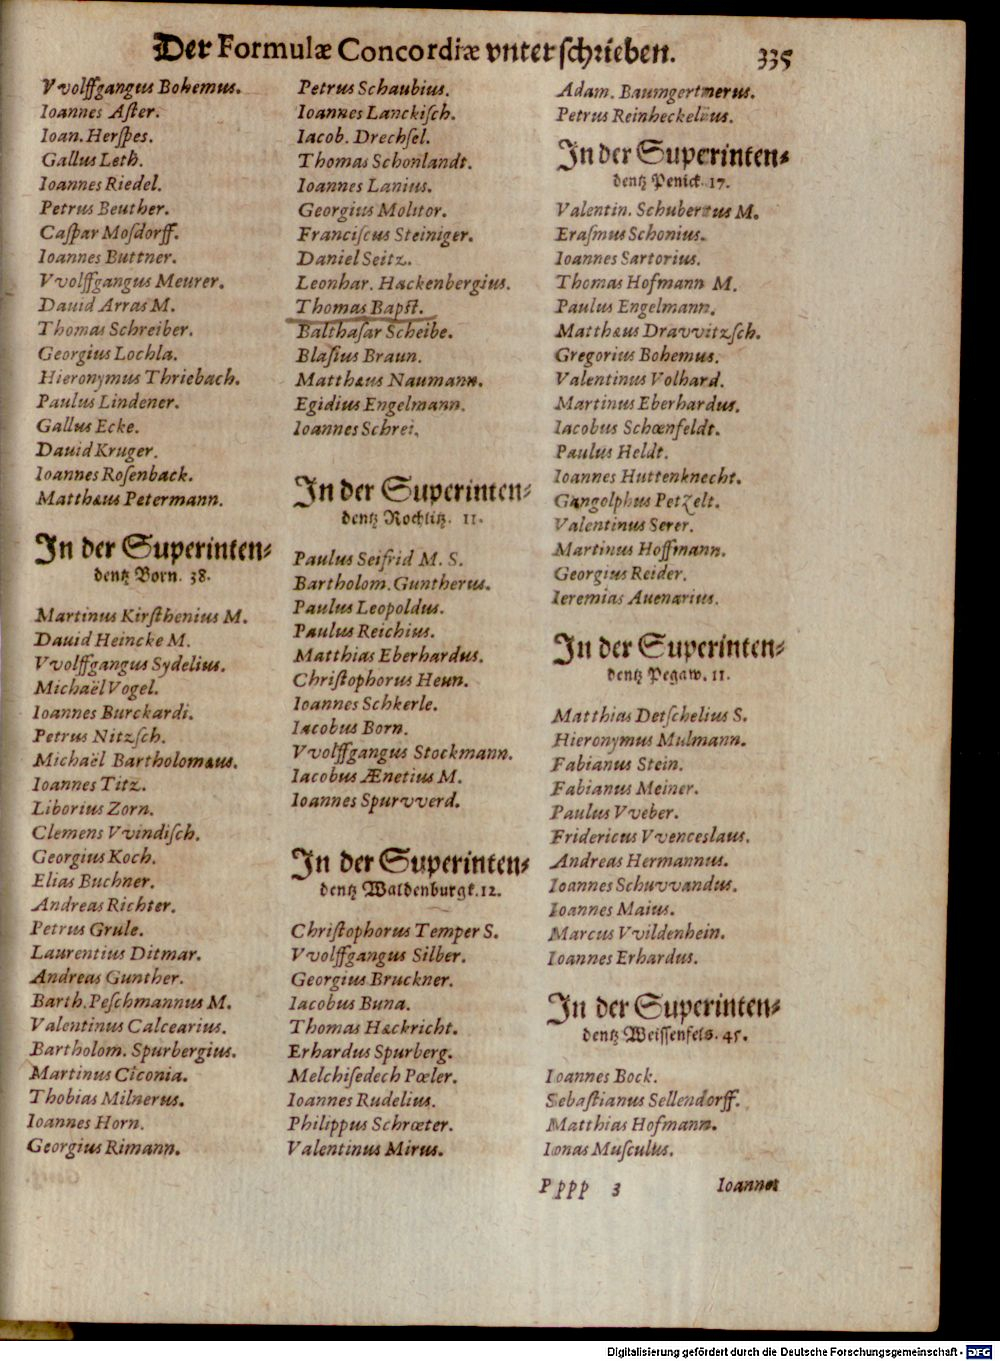 Der Formulæ Concordiæ vnterschrieben. 335
Vvolffgangus Bohemus.
Ioannes Aſter.
Ioan. Herſpes.
Gallus Leth.
Ioannes Riedel.
Petrus Beuther.
Caſpar Mosdorff.
Ioannes Buttner.
Vvolffgangus Meurer.
Dauid Arras M.
Thomas Schreiber.
Georgius Lochla.
Hieronymus Thriebach.
Paulus Lindener.
Gallus Ecke.
Dauid Kruger.
Ioannes Roſenback.
Matthæus Petermann.
In der Superinten⸗
dentz Born. 38.
Martinus Kirſthenius M.
Dauid Heincke M.
Vvolffgangus Sydelius.
Michaël Vogel.
Ioannes Burckardi.
Petrus Nitzſch.
Michaël Bartholomæus.
Ioannes Titz.
Liborius Zorn.
Clemens Vvindiſch.
Georgius Koch.
Elias Buchner.
Andreas Richter.
Petrus Grule.
Laurentius Ditmar.
Andreas Gunther.
Barth. Peſchmannus M.
Valentinus Calcearius.
Bartholom. Spurbergius.
Martinus Ciconia.
Thobias Milnerus.
Ioannes Horn.
Georgius Rimann.
Petrus Schaubius.
Ioannes Lanckiſch.
Iacob. Drechſel.
Thomas Schonlandt.
Ioannes Lanius.
Georgius Molitor.
Franciſcus Steiniger.
Daniel Seitz.
Leonhar. Hackenbergius.
Thomas Bapſt.
Balthaſar Scheibe.
Blaſius Braun.
Matthæus Naumann.
Egidius Engelmann.
Ioannes Schrei.
In der Superinten⸗
dentz Rochlitz. 11.
Paulus Seifrid M. S.
Bartholom. Guntherus.
Paulus Leopoldus.
Paulus Reichius.
Matthias Eberhardus.
Chriſtophorus Heun.
Ioannes Schkerle.
Iacobus Born.
Vvolffgangus Stockmann.
Iacobus Ænetius M.
Ioannes Spurvverd.
In der Superinten⸗
dentz Waldenburgk. 12.
Chriſtophorus Temper S.
Vvolffgangus Silber.
Georgius Bruckner.
Iacobus Buna.
Thomas Hackricht.
Erhardus Spurberg.
Melchiſedech Pœler.
Ioannes Rudelius.
Philippus Schrœter.
Valentinus Mirus.
Adam. Baumgertnerus.
Petrus Reinheckelius.
In der Superinten⸗
dentz Penick. 17.
Valentin. Schubertus M.
Eraſmus Schonius.
Ioannes Sartorius.
Thomas Hofmann M.
Paulus Engelmann.
Matthæus Dravvitzſch.
Gregorius Bohemus.
Valentinus Volhard.
Martinus Eberhardus.
Iacobus Schœnfeldt.
Paulus Heldt.
Ioannes Huttenknecht.
Gangolphus Petzelt.
Valentinus Serer.
Martinus Hoffmann.
Georgius Reider.
Ieremias Auenarius.
In der Superinten⸗
dentz Pegaw. 11.
Matthias Detſchelius S.
Hieronymus Mulmann.
Fabianus Stein.
Fabianus Meiner.
Paulus Vveber.
Fridericus Vvenceslaus.
Andreas Hermannus.
Ioannes Schuvvandus.
Ioannes Maius.
Marcus Vvildenhein.
Ioannes Erhardus.
In der Superinten⸗
dentz Weiſſenfels. 45.
Ioannes Bock.
Sebaſtianus Sellendorff.
Matthias Hofmann.
Ionas Muſculus.
Pppp 3 Ioannes
Digitalisierung gefördert durch die Deutsche Forschungsgemeinschaft - DFG